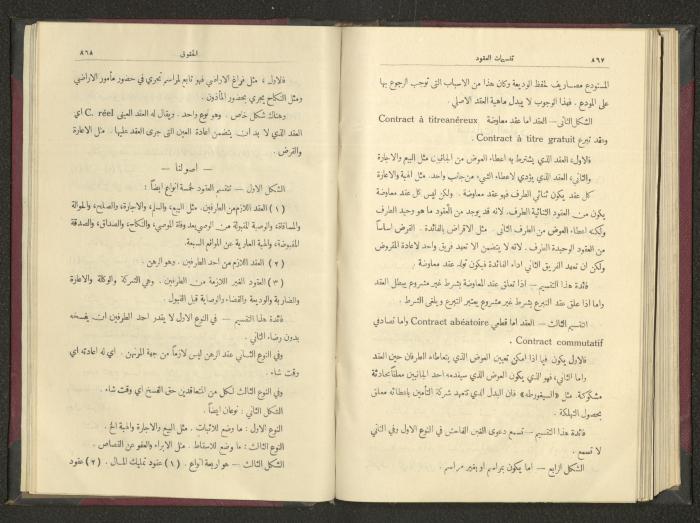 ٨٦٧
تقسيمات العقود
المستودع مصاريف لحفظ الوديعة وكان هذا من الاسباب التي توجب الرجوع بها
على المودع . فهذا الوجوب لا يبدل ماهية العقد الاصلي .
الشكل الثاني — العقد اما عقد معاوضة Contract à titreanéreux
وعقد تبرع Contract à titre gratuit .
فالاول، العقد الذي يشترط به اعطاء العوض من الجانبين مثل البيع والاجارة
والثاني، العقد الذي يؤدي لاعطاء الشيء من جانب واحد. مثل الهبة والاعارة
كل عقد يكون ثنائي الطرف فهو عقد معاوضة . ولكن ليس كل عقد معاوضة
يكون من العقود الثنائية الطرف. لانه قد يوجد من العقود ما هو وحيد الطرف
ولكنه اعطاء العوض من الطرف الثاني . مثل الاقراض بالفائدة . القرض اساساً
من العقود الوحيدة الطرف . لانه لا يتضمن الا تعهد فريق واحد لاعادة المقروض
ولكن ان تعهد الفريق الثاني اداء الفائدة فيكون تولد عقد معاوضة .
فائدة هذا التقسيم — اذا تعلق عند المعاوضة بشرط غير مشروع يبطل العقد
واما اذا علق عقد التبرع بشرط غير مشروع يعتبر التبرع ويلغى الشرط .
التقسيم الثالث — العقد اما قطعي Contract abéatoire واما تصادفي
Contract commutatif .
فالاول يكون فيها اذا امكن تعيين العوض الذي يتعاطاه الطرفان حين العقد
واما الثاني، فهو الذي يكون العوض الذي سيقدمه احد الجانبين معلقاً بحادثة
مشكوكة. مثل «السيغورطه» فان البدل الذي تتعهد شركة التأمين باعطائه معلق
بحصول التهلكة .
فائدة هذا التقسيم — تسمع دعوى الغبن الفاحش في النوع الاول وفي الثاني
لا تسمع .
الشكل الرابع — اما يكون بمراسم او بغير مراسم .
الحقوق
٨٦٨
فالاول ، مثل فراغ الاراضي فهو تابع لمراسم تجري في حضور مأمور الاراضي
ومثل النكاح يجري بحضور المأذون .
وهناك شكل خاص . وهو نوع واحد . ويقال له العقد العيني C. réel اي
العقد الذي لا بد ان يتضمن اعادة العين التي جرى العقد عليها . مثل الاعارة
والقرض .
— اصولنا —
الشكل الاول — تنقسم العقود لخمسة انواع ايضاً :
(١) العقد اللازم من الطرفين. مثل البيع، والسلم، والاجارة، والصلح، والحوالة
والمساقاة، والوصية المقبولة من الوصي بعد وفاة الموصي، والنكاح، والصداق، والصدقة
المقبوضة، والهبة العارية عن الموانع السبعة.
(٢) العقد اللازم من احد الطرفين . وهو الرهن .
(٣) العقود الغير اللازمة من الطرفين . وهي الشركة والوكالة والاعارة
والمضاربة والوديعة والقضاء والوصاية قبل القبول .
فائدة هذا التقسيم — في النوع الاول لا يقدر احد الطرفين ان يفسخه
بدون رضاء الثاني .
وفي النوع الثاني عند الرهن ليس لازماً من جهة المرتهن . اي له اعادته اي
وقت شاء .
وفي النوع الثالث لكل من المتعاقدين حق الفسخ اي وقت شاء .
الشكل الثاني : نوعان ايضاً .
النوع الاول : ما وضع للاثبات . مثل البيع والاجارة والهبة الخ .
النوع الثالث : ما وضع للاسقاط . مثل الابراء والعفو عن القصاص .
الشكل الثالث — هو اربعة انواع . (١) عقود تمليك المال . (٢) عقود